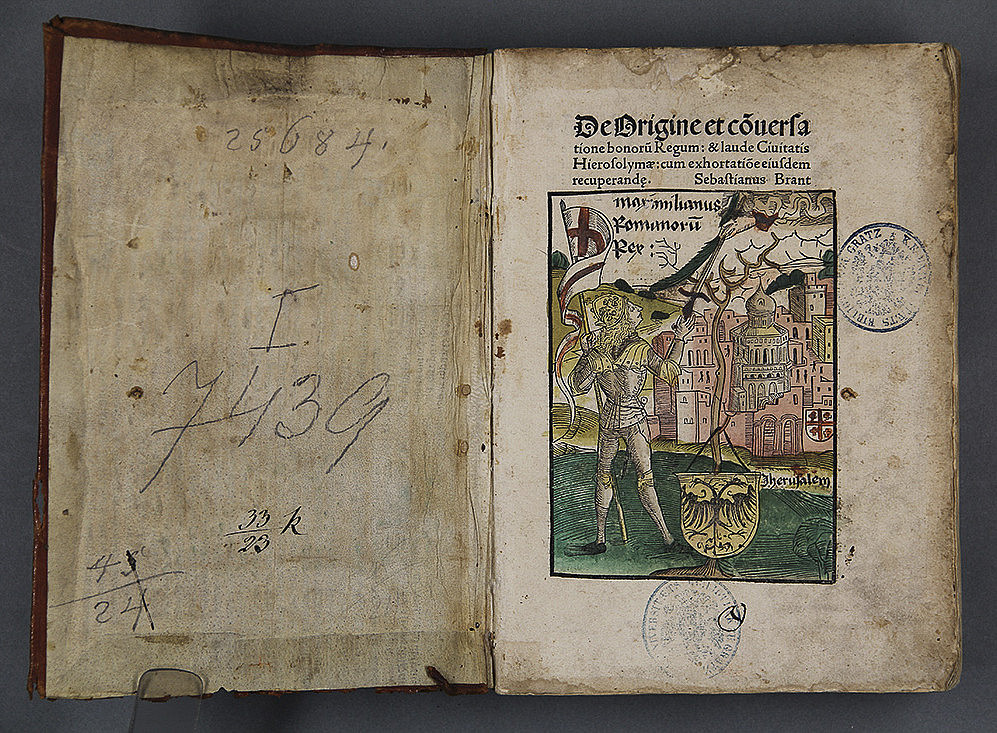 25684.
I
7439
33
23 k
45
24
De Origine et cõuersa
tione bonorũ Regum: & laude Ciuitatis
Hierosolymæ: cum exhortatiõe eiusdem
recuperandę. Sebastianus Brant
maximilianus
Romanorũ
Rex:
Jherusalem
GRATZ